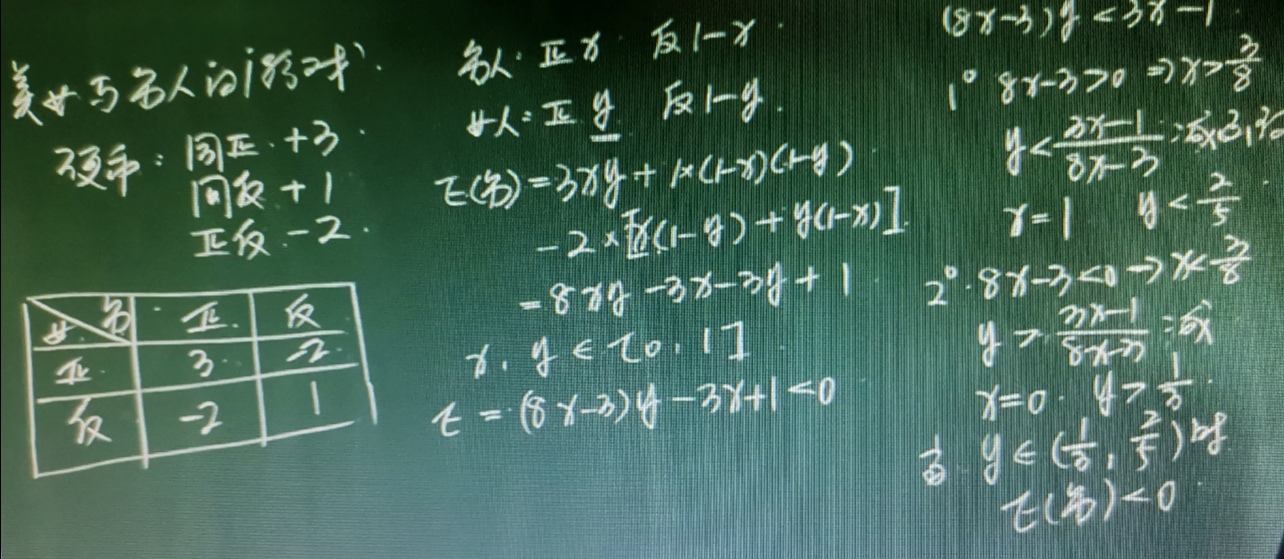 美女与名人的游戏
硬币：同正.+3.
同反+1
正反.-2.
女 男 正. 反
正. 3. -2
反 -2 1
男人: 正x 反1-x
女人: 正y 反1-y.
E(男)=3xy+1×(1-x)(1-y)
-2×[x(1-y)+y(1-x)].
=8xy-3x-3y+1
x, y∈[0,1]
E=(8x-3)y-3x+1<0
(8x-3)y<3x-1
1° 8x-3>0 ⇒x>3/8
y<(3x-1)/(8x-3)
x=1 y<2/5
2°.8x-3<0→x<3/8
y>(3x-1)/(8x-3)
x=0. y>1/3.
y∈(1/3, 2/5)时
E(男)<0